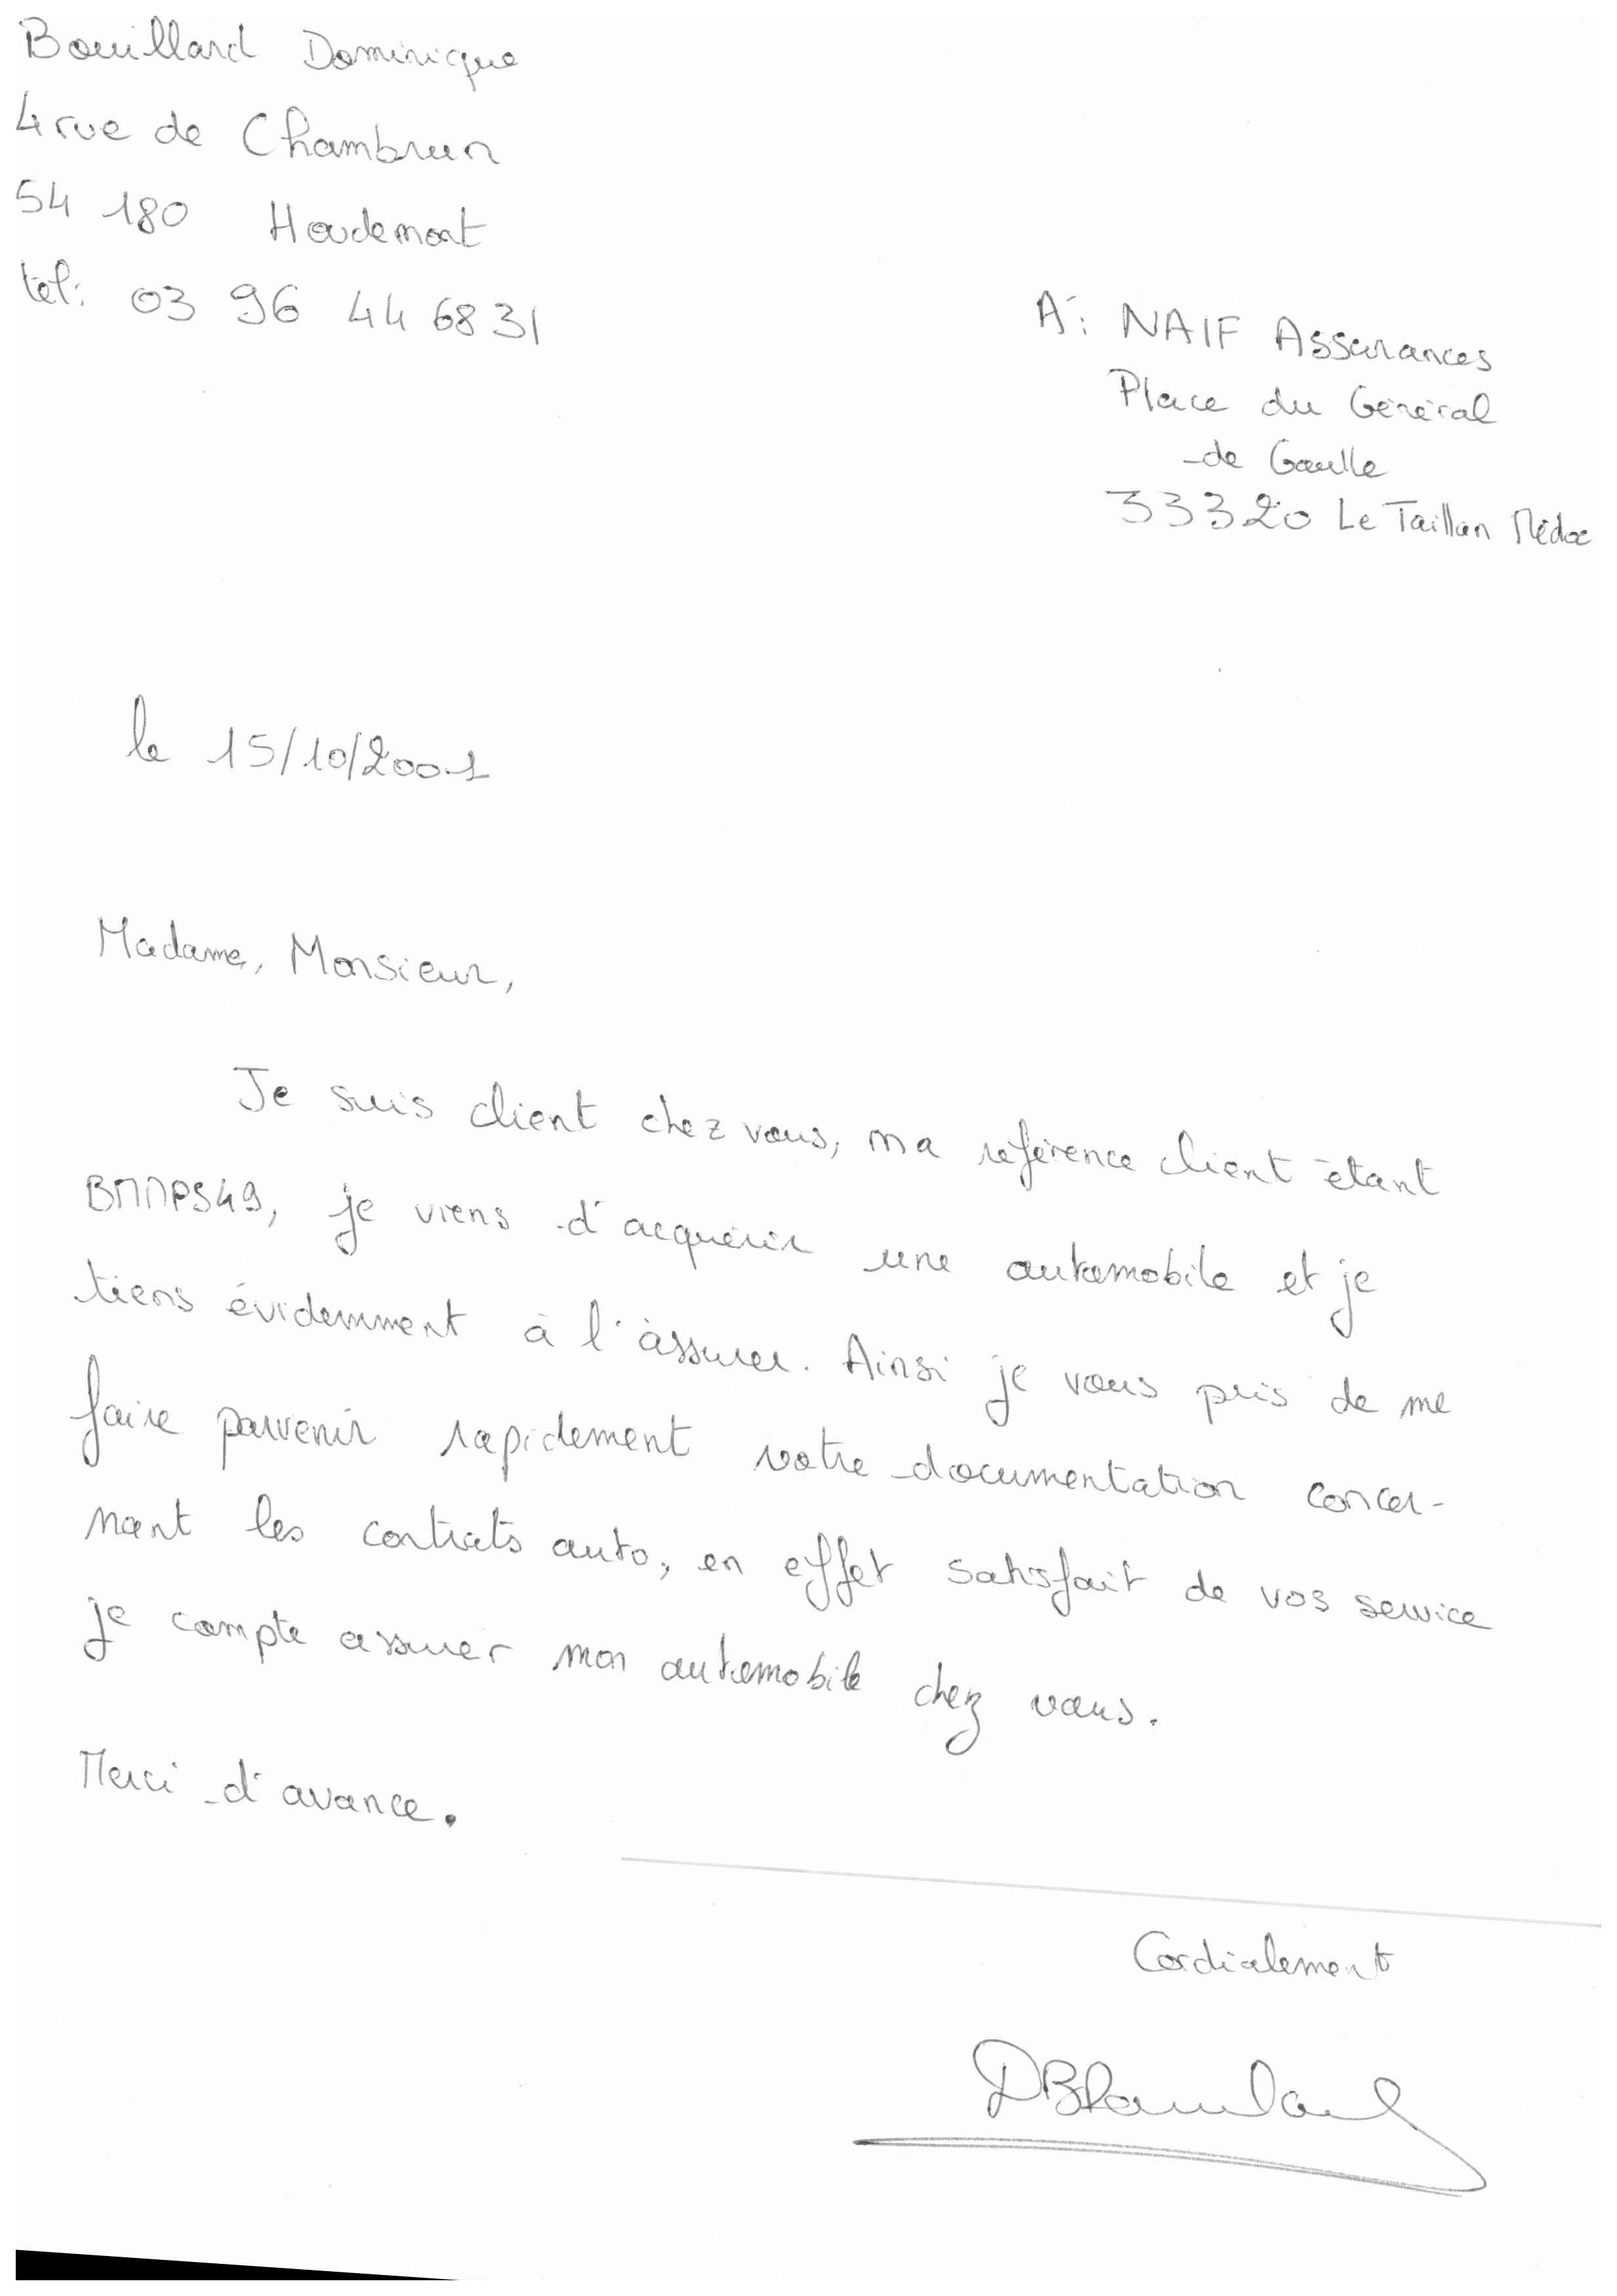 Bouillard Dominique
4 rue de Chambrun
54 180 Houdemont
tel: 03 96 44 68 31
A: NAIF Assurances
Place du Général
de Gaulle
33320 Le Taillan Médoc
le 15/10/2001
Madame, Monsieur,
Je suis client chez vous, ma référence client étant
BMMPS49, je viens d'acquérir une automobile et je
tiens évidemment à l'assurer. Ainsi je vous pris de me
faire parvenir rapidement votre documentation concer-
nant les contrats auto, en effet satisfait de vos service
je compte assurer mon automobile chez vous.
Merci d'avance.
Cordialement